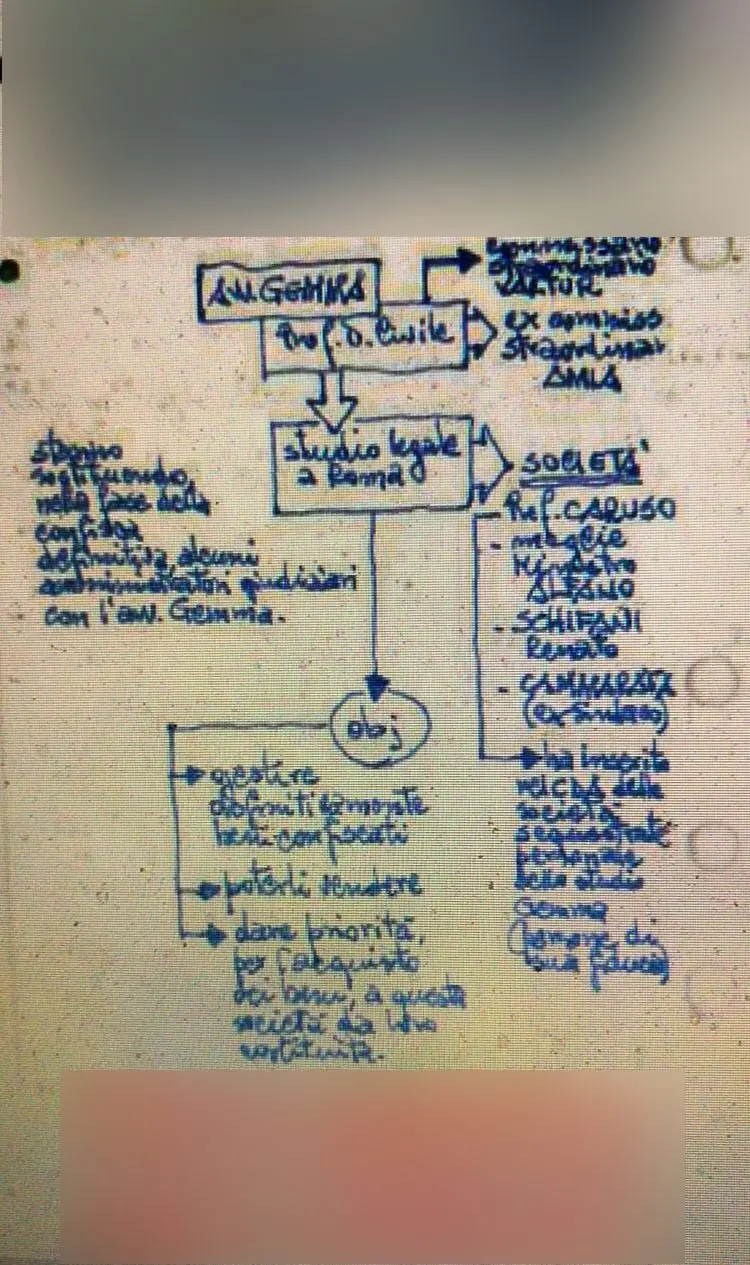 commissario
straordinario
VALTUR
AVV. GEMMA
Prof. D. Civile
ex commiss.
straordinar.
AMIA
studio legale
a Roma
SOCIETÀ
stanno
sostituendo,
nella fase della
confisca
definitiva, alcuni
amministratori giudiziari
con l'avv. Gemma.
Prof. CARUSO
- moglie
Ministro
ALFANO
- SCHIFANI
Renato
- CAMMARATA
(ex Sindaco)
obj
gestire
definitivamente
beni confiscati
poterli vendere
dare priorità,
per l'acquisto
dei beni, a queste
società da loro
costituite.
ha inserito
nei CdA delle
società
sequestrate
personale
dello studio
Gemma
(persone di
sua fiducia)